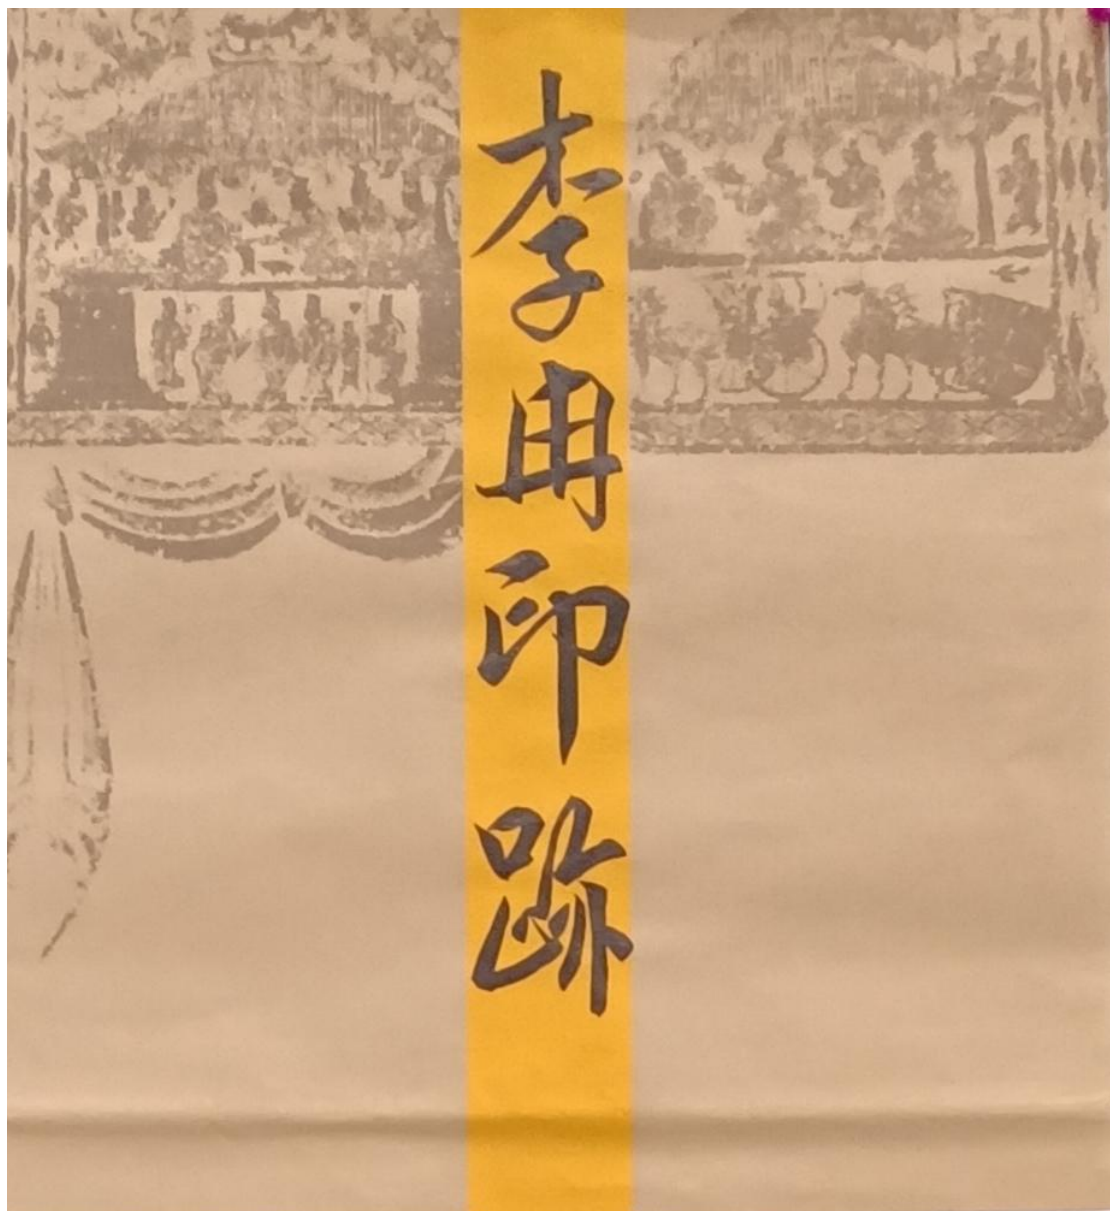 李冉印跡